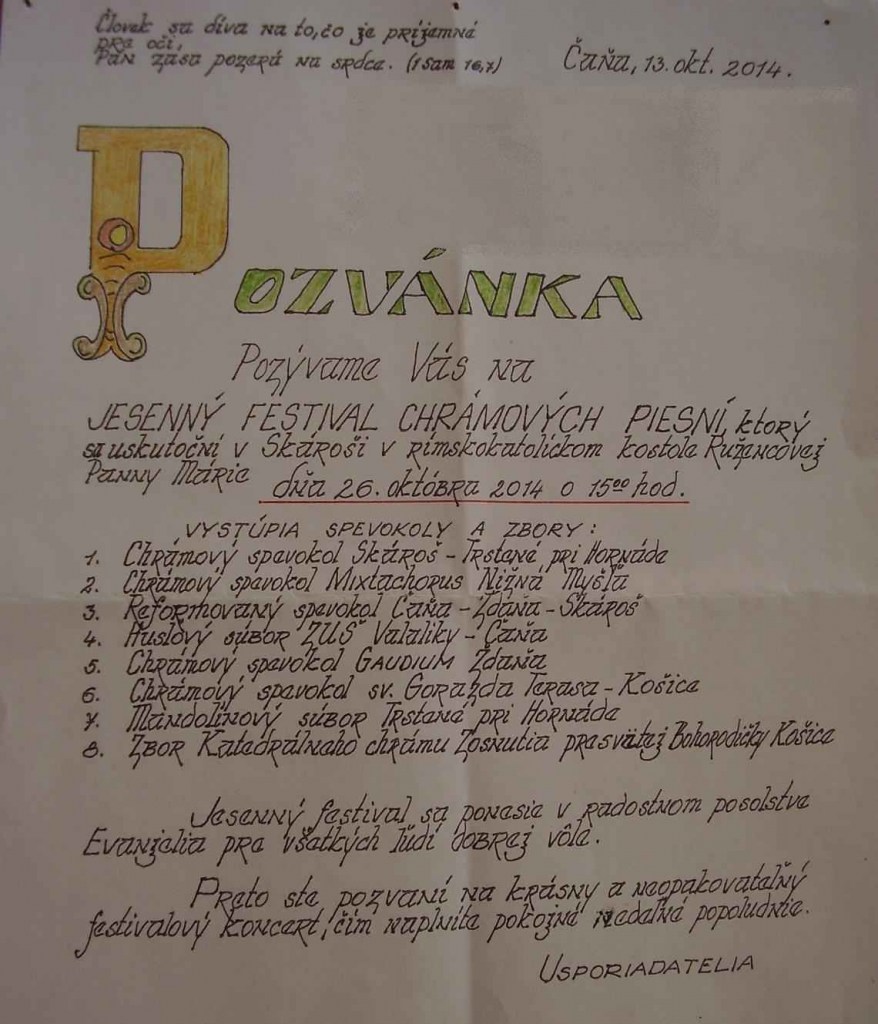 Človek sa díva na to, čo je príjemné
pre oči,
Pán zasa pozerá na srdce. (1 Sam 16,7)
Čaňa, 13. okt. 2014.
POZVÁNKA
Pozývame Vás na
JESENNÝ FESTIVAL CHRÁMOVÝCH PIESNÍ, ktorý
sa uskutoční v Skároši v rímskokatolíckom kostole Ružencovej
Panny Márie dňa 26. októbra 2014 o 15⁰⁰ hod.
VYSTÚPIA SPEVOKOLY A ZBORY:
1. Chrámový spevokol Skároš - Trstené pri Hornáde
2. Chrámový spevokol Mixtachorus Nižná Myšľa
3. Reformovaný spevokol Čaňa - Ždaňa - Skároš
4. Husľový súbor ZUŠ Valaliky - Čaňa
5. Chrámový spevokol GAUDIUM Ždaňa
6. Chrámový spevokol sv. Gorazda Terasa - Košice
7. Mandolínový súbor Trstené pri Hornáde
8. Zbor Katedrálneho chrámu Zosnutia presvätej Bohorodičky Košice
Jesenný festival sa ponesie v radostnom posolstve
Evanjelia pre všetkých ľudí dobrej vôle.
Preto ste pozvaní na krásny a neopakovateľný
festivalový koncert, čím naplníte pokojné nedeľné popoludnie.
USPORIADATELIA